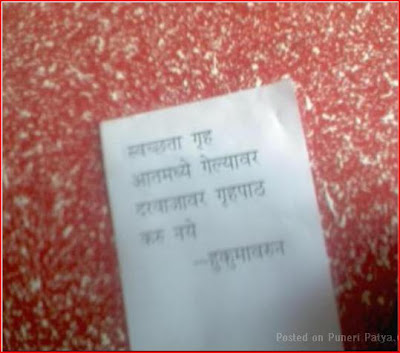 स्वच्छता गृह
आतमध्ये गेल्यावर
दरवाजावर गृहपाठ
करु नये
—हुकुमावरुन
Posted on Puneri Patya.